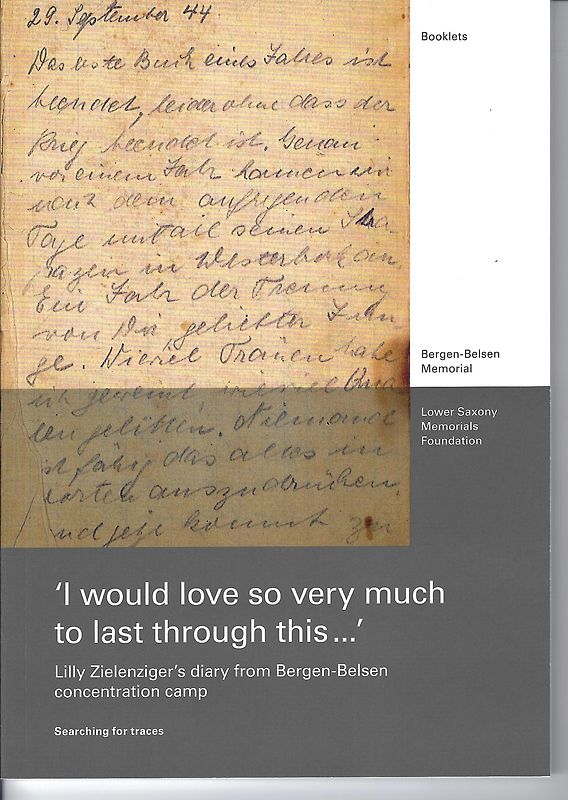 29. September 44
Das erste Buch eines Jahres ist
beendet, leider ohne dass der
Krieg beendet ist. Genau
vor einem Jahr kamen wir
nach dem aufregenden
Tage mit all seinen Stra-
pazen in Westerbork an.
Ein Jahr der Trennung
von Dir geliebter Jun-
ge. Wieviel Tränen habe
ich geweint, wieviel Qua-
len gelitten. Niemand
ist fähig das alles in
Worten auszudrücken,
und jetzt kommt zu
Booklets
Bergen-Belsen
Memorial
Lower Saxony
Memorials
Foundation
‘I would love so very much
to last through this ...’
Lilly Zielenziger’s diary from Bergen-Belsen
concentration camp
Searching for traces